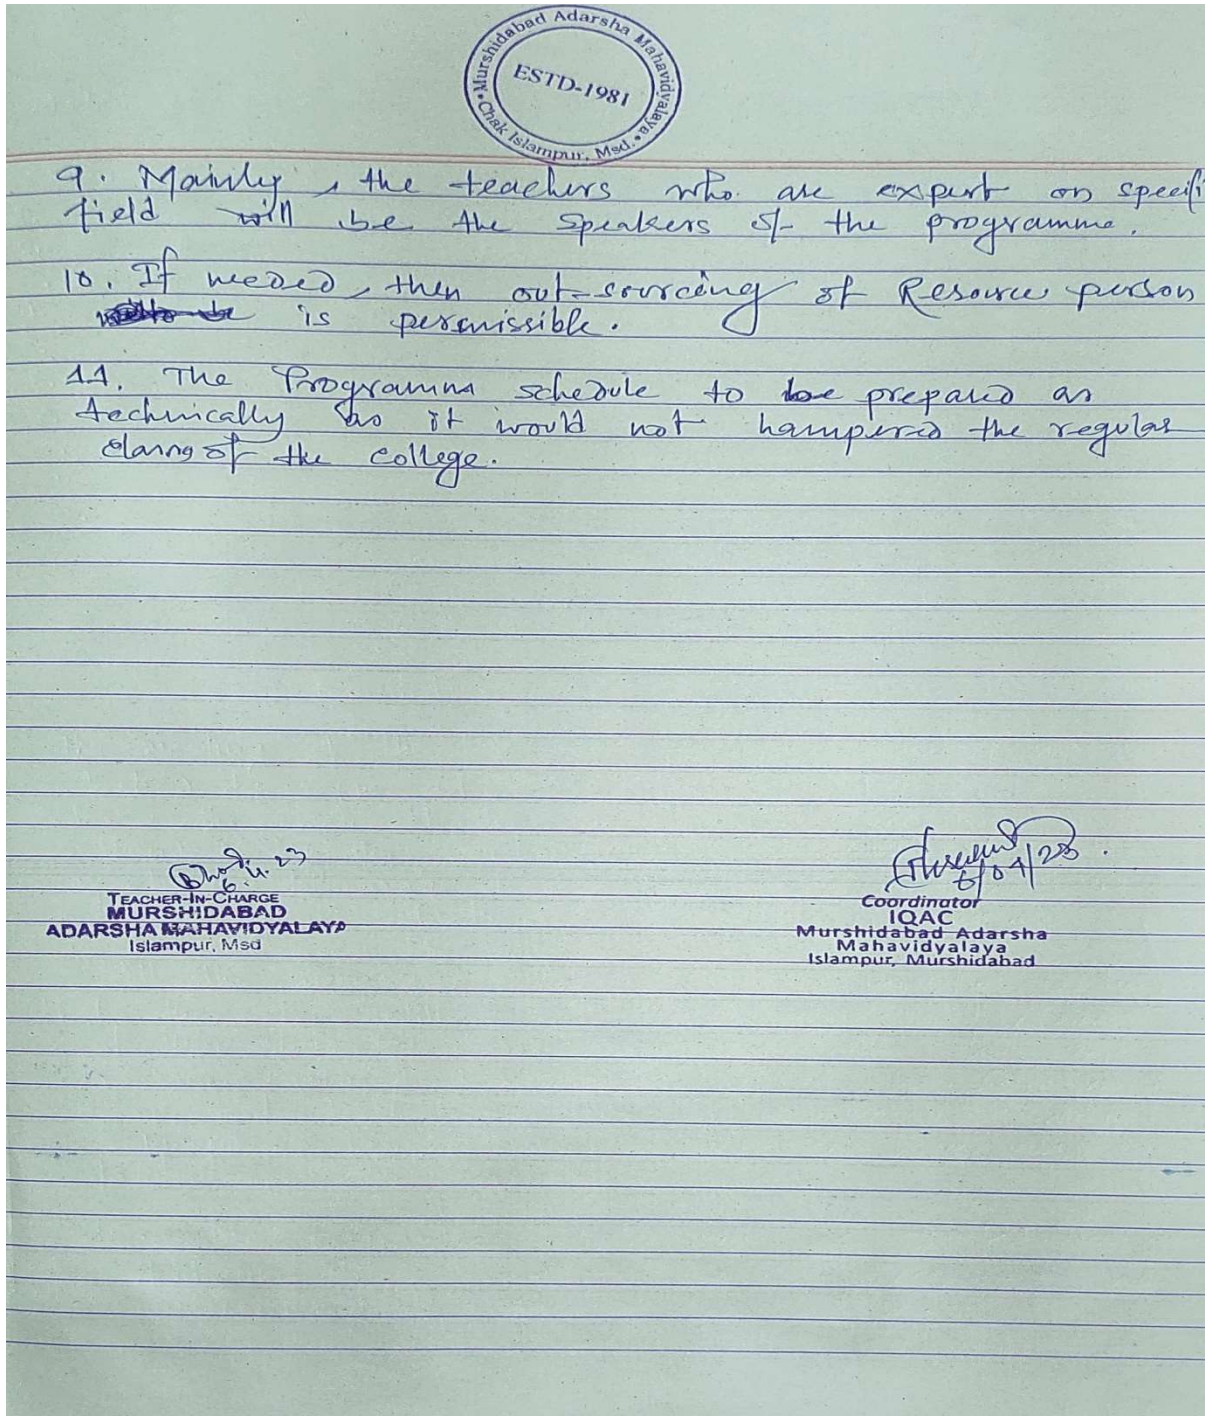 Murshidabad Adarsha Mahavidyalaya
ESTD-1981
Chak Islampur, Msd.
9. Mainly, the teachers who are expert on specifi
field will be the speakers of the programme.
10. If needed, then out-sourcing of Resource person
is permissible.
11. The Programme schedule to be prepared as
technically so it would not hampered the regular
of the college.
6.4.23
TEACHER-IN-CHARGE
MURSHIDABAD
ADARSHA MAHAVIDYALAYA
Islampur, Msd
6/04/23
Coordinator
IQAC
Murshidabad Adarsha
Mahavidyalaya
Islampur, Murshidabad